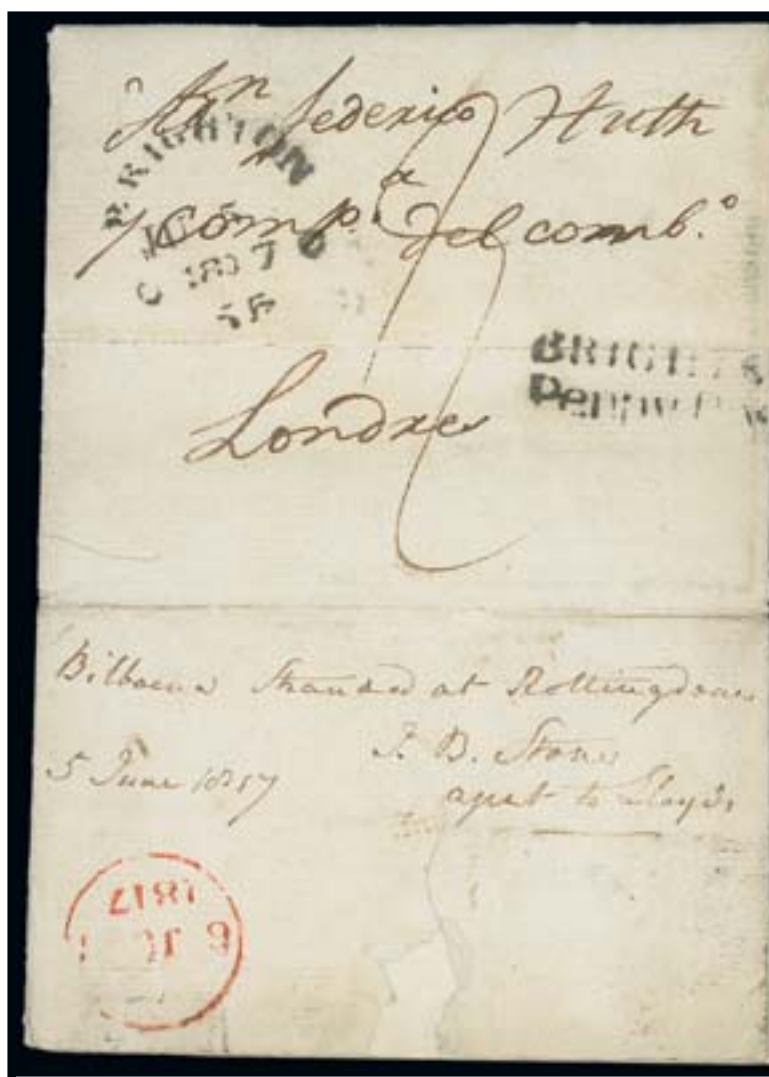 Srn federico Huth
y Comp.a del comb.o
Londres
BRIGHTON
JU 5
1817
55
BRIGHTON
Penny P
Bilbaena Stranded at Rottingdean
5 June 1817
J. B. Stone
agent to Lloyds
6 JU
1817